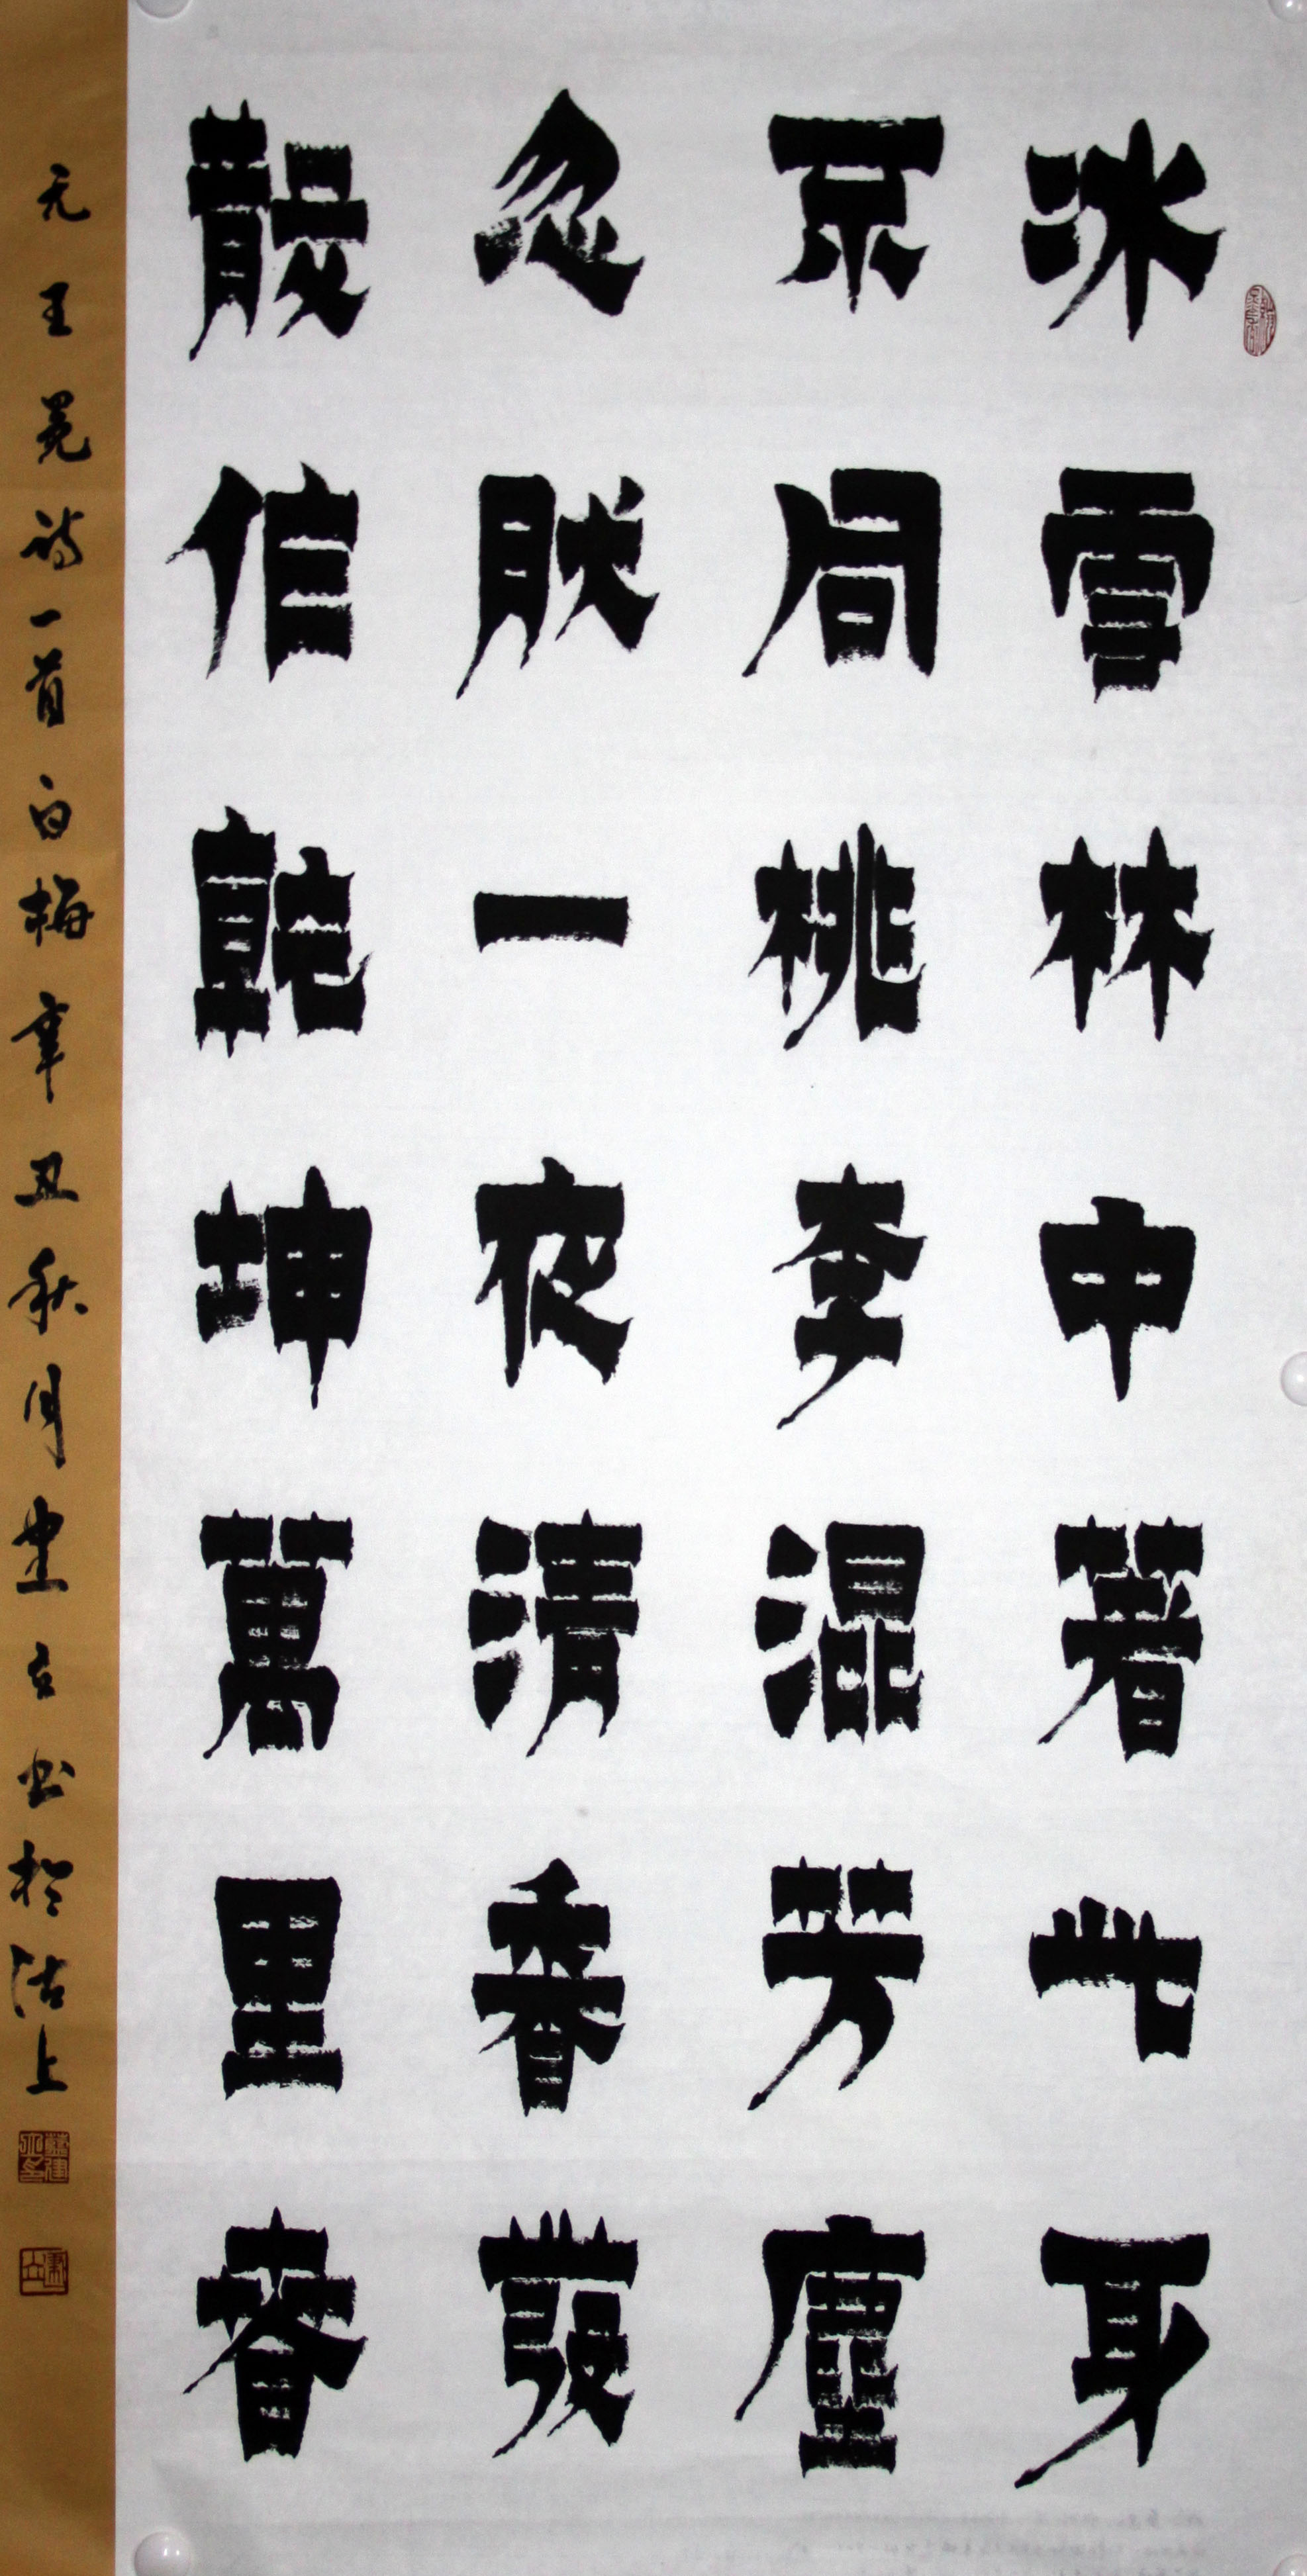 冰雪林中著此身
不同桃李混芳塵
忽然一夜清香發
散作乾坤萬里春
元王冕詩一首白梅辛丑秋月建立书於沽上